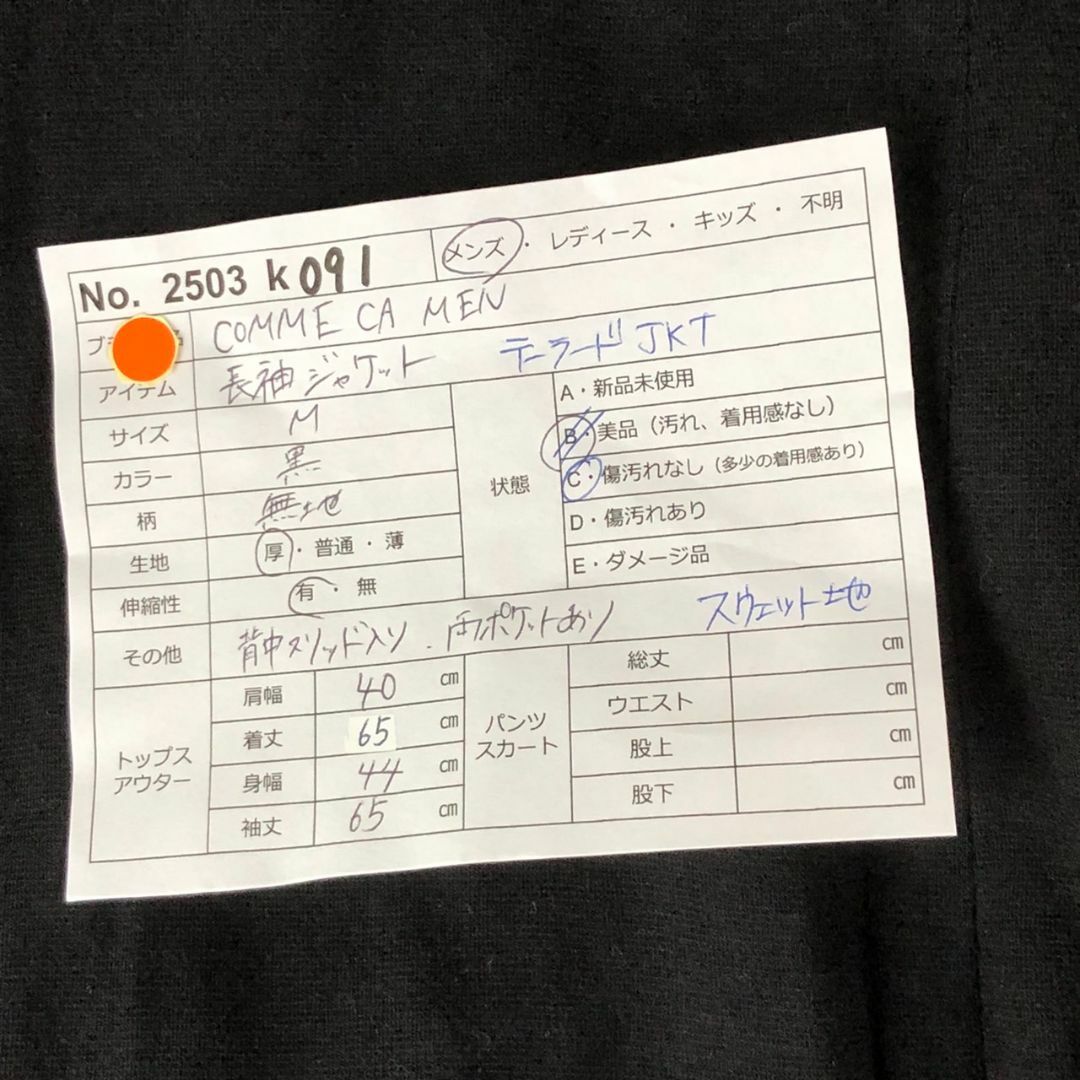 No. 2503 k091 メンズ ・ レディース ・ キッズ ・ 不明
COMME CA MEN
アイテム 長袖ジャケット テーラードJKT
サイズ M
カラー 黒
柄 無地
生地 厚・普通・薄
伸縮性 有・無
状態
A・新品未使用
B・美品（汚れ、着用感なし）
C・傷汚れなし（多少の着用感あり）
D・傷汚れあり
E・ダメージ品
その他 背中スリッド入り.両ポケットあり スウェット土地
トップス
アウター
肩幅 40 cm
着丈 65 cm
身幅 44 cm
袖丈 65 cm
パンツ
スカート
総丈 cm
ウエスト cm
股上 cm
股下 cm